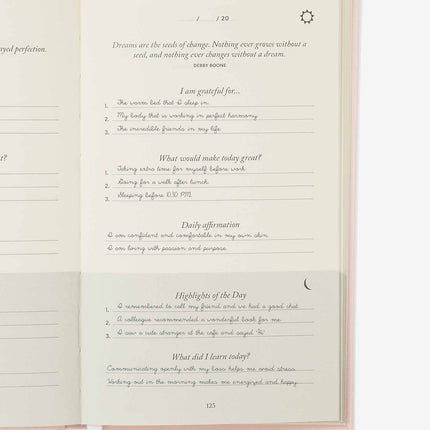 / / 20
yed perfection.
Dreams are the seeds of change. Nothing ever grows without a
seed, and nothing ever changes without a dream.
DEBBY BOONE
I am grateful for...
1. The warm bed that I sleep in.
2. My body that is working in perfect harmony
3. The incredible friends in my life
t?
What would make today great?
1. Taking extra time for myself before work
2. Going for a walk after lunch.
3. Sleeping before 10.30 PM.
Daily affirmation
I am confident and comfortable in my own skin.
I am living with passion and purpose.
Highlights of the Day
1. I remembered to call my friend and we had a good chat.
2. A colleague recommended a wonderful book for me.
3. I saw a cute stranger at the cafe and sayed 'Hi'
What did I learn today?
Communicating openly with my boss helps me avoid stress.
Working out in the morning makes me energized and happy.
125